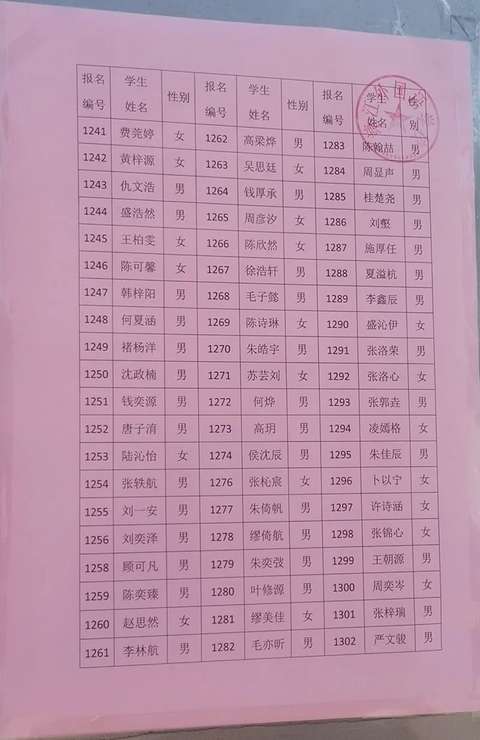 报名编号 学生姓名 性别 报名编号 学生姓名 性别 报名编号 学生姓名 性别
1241 费莞婷 女 1262 高梁烨 男 1283 陈翰喆 男
1242 黄梓源 女 1263 吴思廷 女 1284 周显声 男
1243 仇文浩 男 1264 钱厚承 男 1285 桂楚尧 男
1244 盛浩然 男 1265 周彦汐 女 1286 刘壑 男
1245 王柏雯 女 1266 陈欣然 女 1287 施厚任 男
1246 陈可馨 女 1267 徐浩轩 男 1288 夏溢杭 男
1247 韩梓阳 男 1268 毛子懿 男 1289 李鑫辰 男
1248 何夏涵 男 1269 陈诗琳 女 1290 盛沁伊 女
1249 褚杨洋 男 1270 朱皓宇 男 1291 张洛荣 男
1250 沈政楠 男 1271 苏芸刘 女 1292 张洛心 女
1251 钱奕源 男 1272 何烨 男 1293 张郭垚 男
1252 唐子淯 男 1273 高玥 男 1294 凌嫣格 女
1253 陆沁怡 女 1274 侯沈辰 男 1295 朱佳辰 男
1254 张轶航 男 1276 张杺宸 女 1296 卜以宁 女
1255 刘一安 男 1277 朱倚帆 男 1297 许诗涵 女
1256 刘奕泽 男 1278 缪倚航 男 1298 张锦心 女
1258 顾可凡 男 1279 朱奕弢 男 1299 王朝源 男
1259 陈奕臻 男 1280 叶修源 男 1300 周奕岑 女
1260 赵思然 女 1281 缪美佳 女 1301 张梓瑞 男
1261 李林航 男 1282 毛亦昕 男 1302 严文骏 男